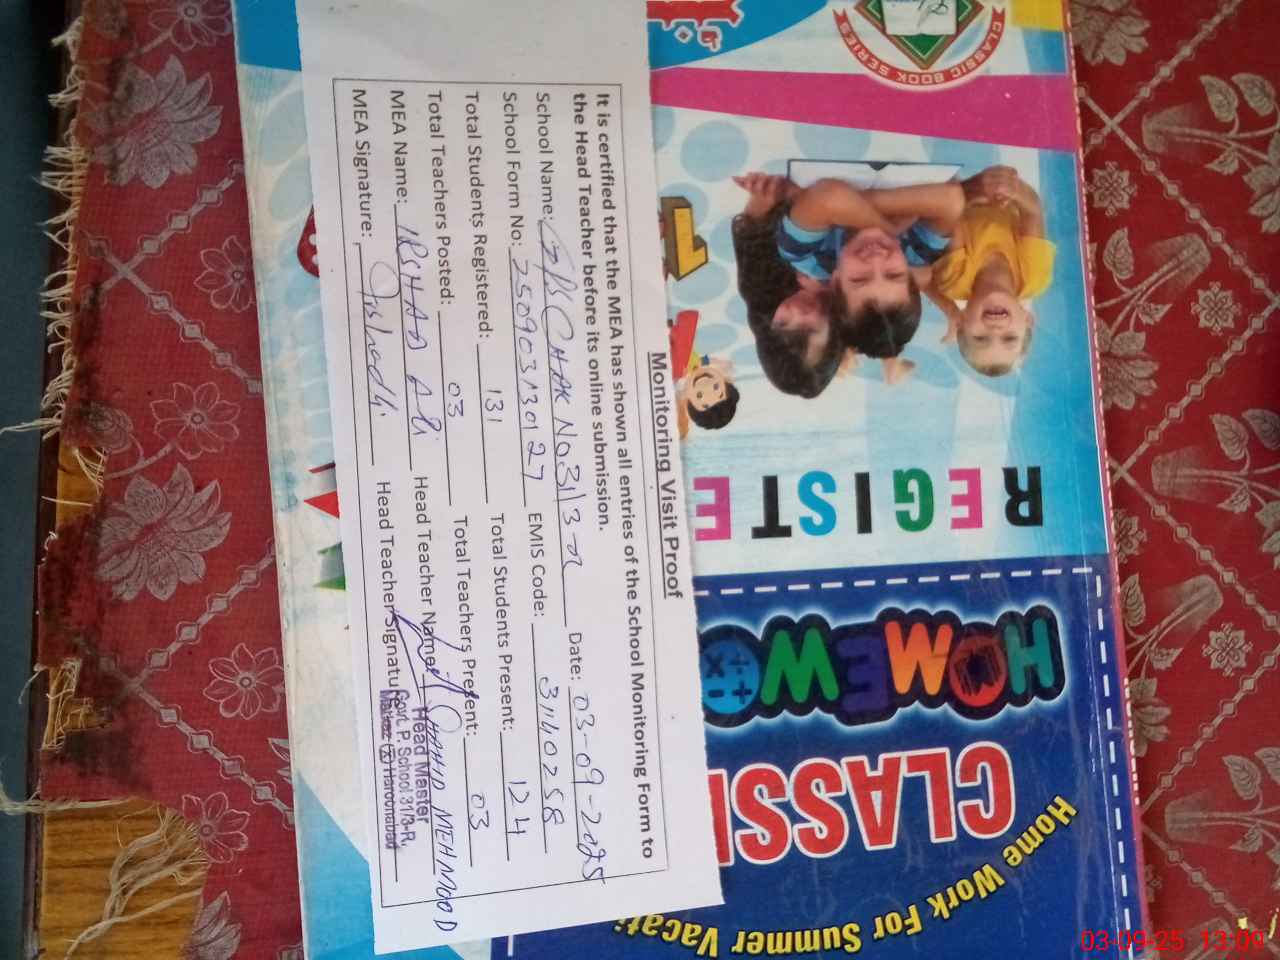 Monitoring Visit Proof
It is certified that the MEA has shown all entries of the School Monitoring Form to
the Head Teacher before its online submission.
School Name: GPS CHAK NO 31/3-R Date: 03-09-2025
School Form No: 2509031130127 EMIS Code: 31140258
Total Students Registered: 131 Total Students Present: 124
Total Teachers Posted: 03 Total Teachers Present: 03
MEA Name: IRSHAD Ali Head Teacher Name: MEHMOOD
MEA Signature: Irshad Ali Head Teacher Signature:
Head Master
Govt. P. School 31/3-R,
Haroonabad
CLASSIC BOOK SERIES
REGISTE
HOMEWO
CLASSI
Home Work For Summer Vacati
03-09-25 13:09